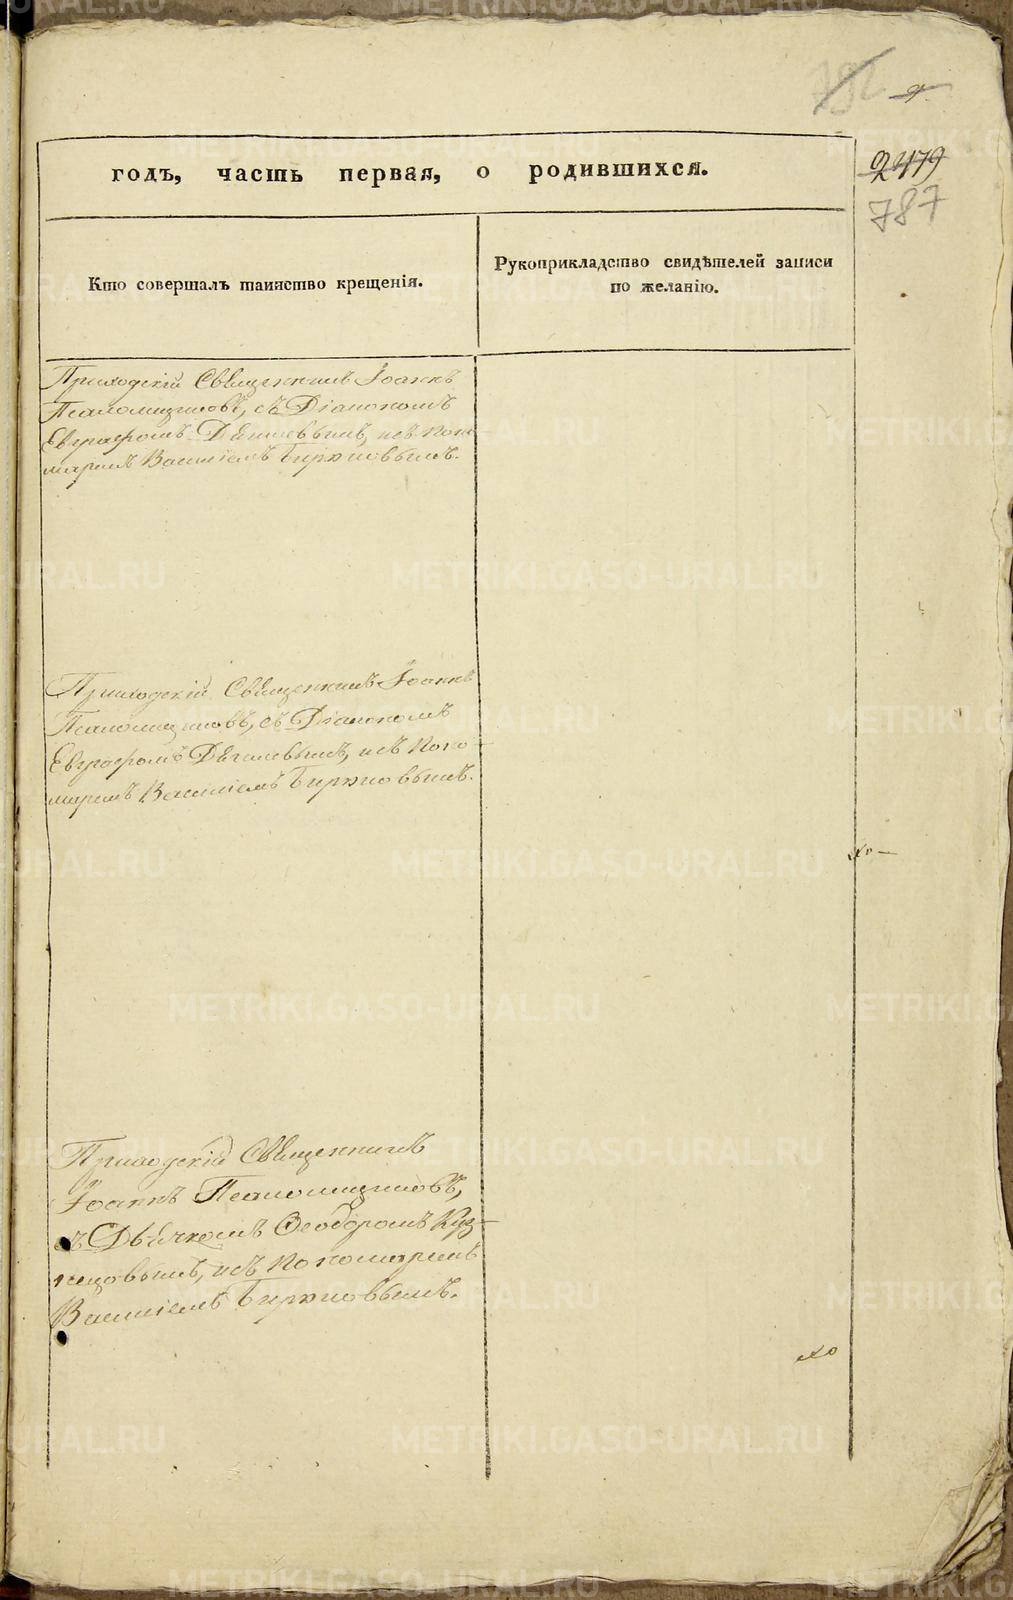 782
2479
787
годъ, часть первая, о родившихся.
Кто совершалъ таинство крещенія.
Рукоприкладство свидѣтелей записи
по желанію.
Приходскій Священникъ Іоаннъ
Псаломщиковъ, съ Діакономъ
Евграфомъ, и съ Поно-
маремъ Василіемъ Бирюковымъ.
Приходскій Священникъ Іоаннъ
Псаломщиковъ, съ Діакономъ
Евграфомъ, и съ Поно-
маремъ Василіемъ Бирюковымъ.
Приходскій Священникъ
Іоаннъ Псаломщиковъ,
съ Дьячкомъ Ѳеодоромъ Куз-
нецовымъ, и съ Пономаремъ
Василіемъ Бирюковымъ.
METRIKI.GASO-URAL.RU